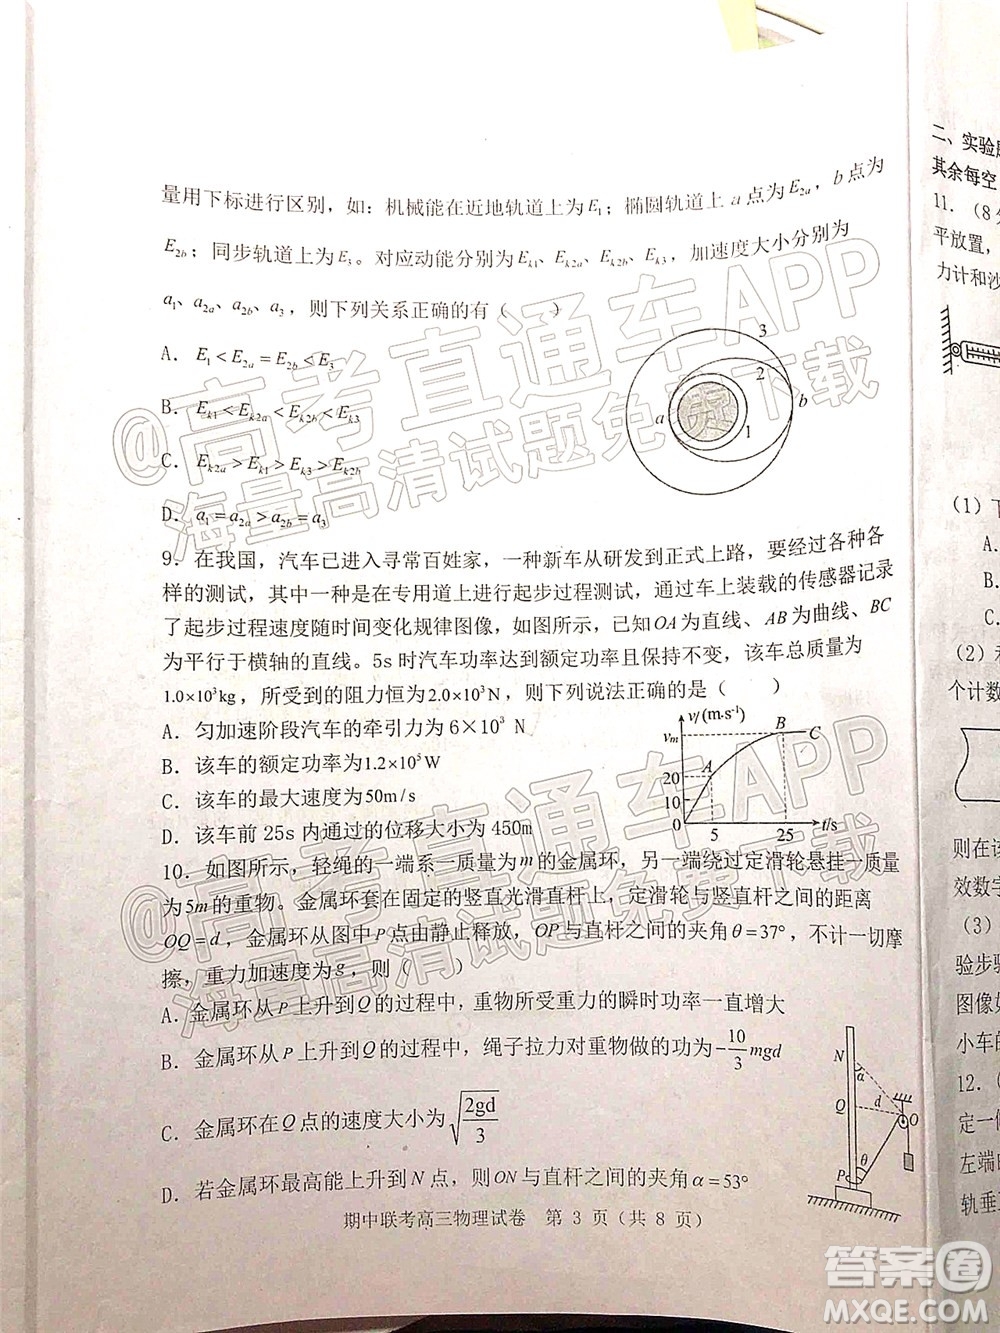 量用下标进行区别，如：机械能在近地轨道上为E₁；椭圆轨道上 a 点为E₂ₐ，b 点为
E₂b；同步轨道上为E₃。对应动能分别为Ek1、Ek2a、Ek2b、Ek3，加速度大小分别为
a₁、a₂ₐ、a₂b、a₃，则下列关系正确的有（　　）
A. E₁<E₂ₐ=E₂b<E₃
B. Ek1<Ek2a<Ek2b<Ek3
C. Ek2a>Ek1>Ek3>Ek2b
D. a₁=a₂ₐ>a₂b=a₃
3
2
a
b
1
9. 在我国，汽车已进入寻常百姓家，一种新车从研发到正式上路，要经过各种各
样的测试，其中一种是在专用道上进行起步过程测试，通过车上装载的传感器记录
了起步过程速度随时间变化规律图像，如图所示，已知OA为直线、AB为曲线、BC
为平行于横轴的直线。5s时汽车功率达到额定功率且保持不变，该车总质量为
1.0×10³kg，所受到的阻力恒为2.0×10³N，则下列说法正确的是（　　）
A. 匀加速阶段汽车的牵引力为 6×10³ N
B. 该车的额定功率为1.2×10⁵W
C. 该车的最大速度为50m/s
D. 该车前 25s 内通过的位移大小为 450m
v/(m·s⁻¹)
vm
B
C
A
20
10
0
5
25
t/s
10. 如图所示，轻绳的一端系一质量为m的金属环，另一端绕过定滑轮悬挂一质量
为5m的重物。金属环套在固定的竖直光滑直杆上，定滑轮与竖直杆之间的距离
OQ=d，金属环从图中P点由静止释放，OP与直杆之间的夹角θ=37°，不计一切摩
擦，重力加速度为g，则（　　）
A. 金属环从P上升到Q的过程中，重物所受重力的瞬时功率一直增大
B. 金属环从P上升到Q的过程中，绳子拉力对重物做的功为−10/3 mgd
C. 金属环在Q点的速度大小为√(2gd/3)
D. 若金属环最高能上升到N点，则ON与直杆之间的夹角α=53°
N
α
Q
d
O
θ
P
期中联考高三物理试卷　第 3 页（共 8 页）
二、实验
其余每空
11.（8
平放置，
力计和沙
(1)
A.
B.
C.
(2)
个计数
则在该
效数字
(3)
验步骤
图像如
小车的
12.（
定一
左端
轨垂
@高考直通车APP
海量高清试题免费下载
@高考直通车APP
海量高清试题免费下载
答案圈
MXQE.COM